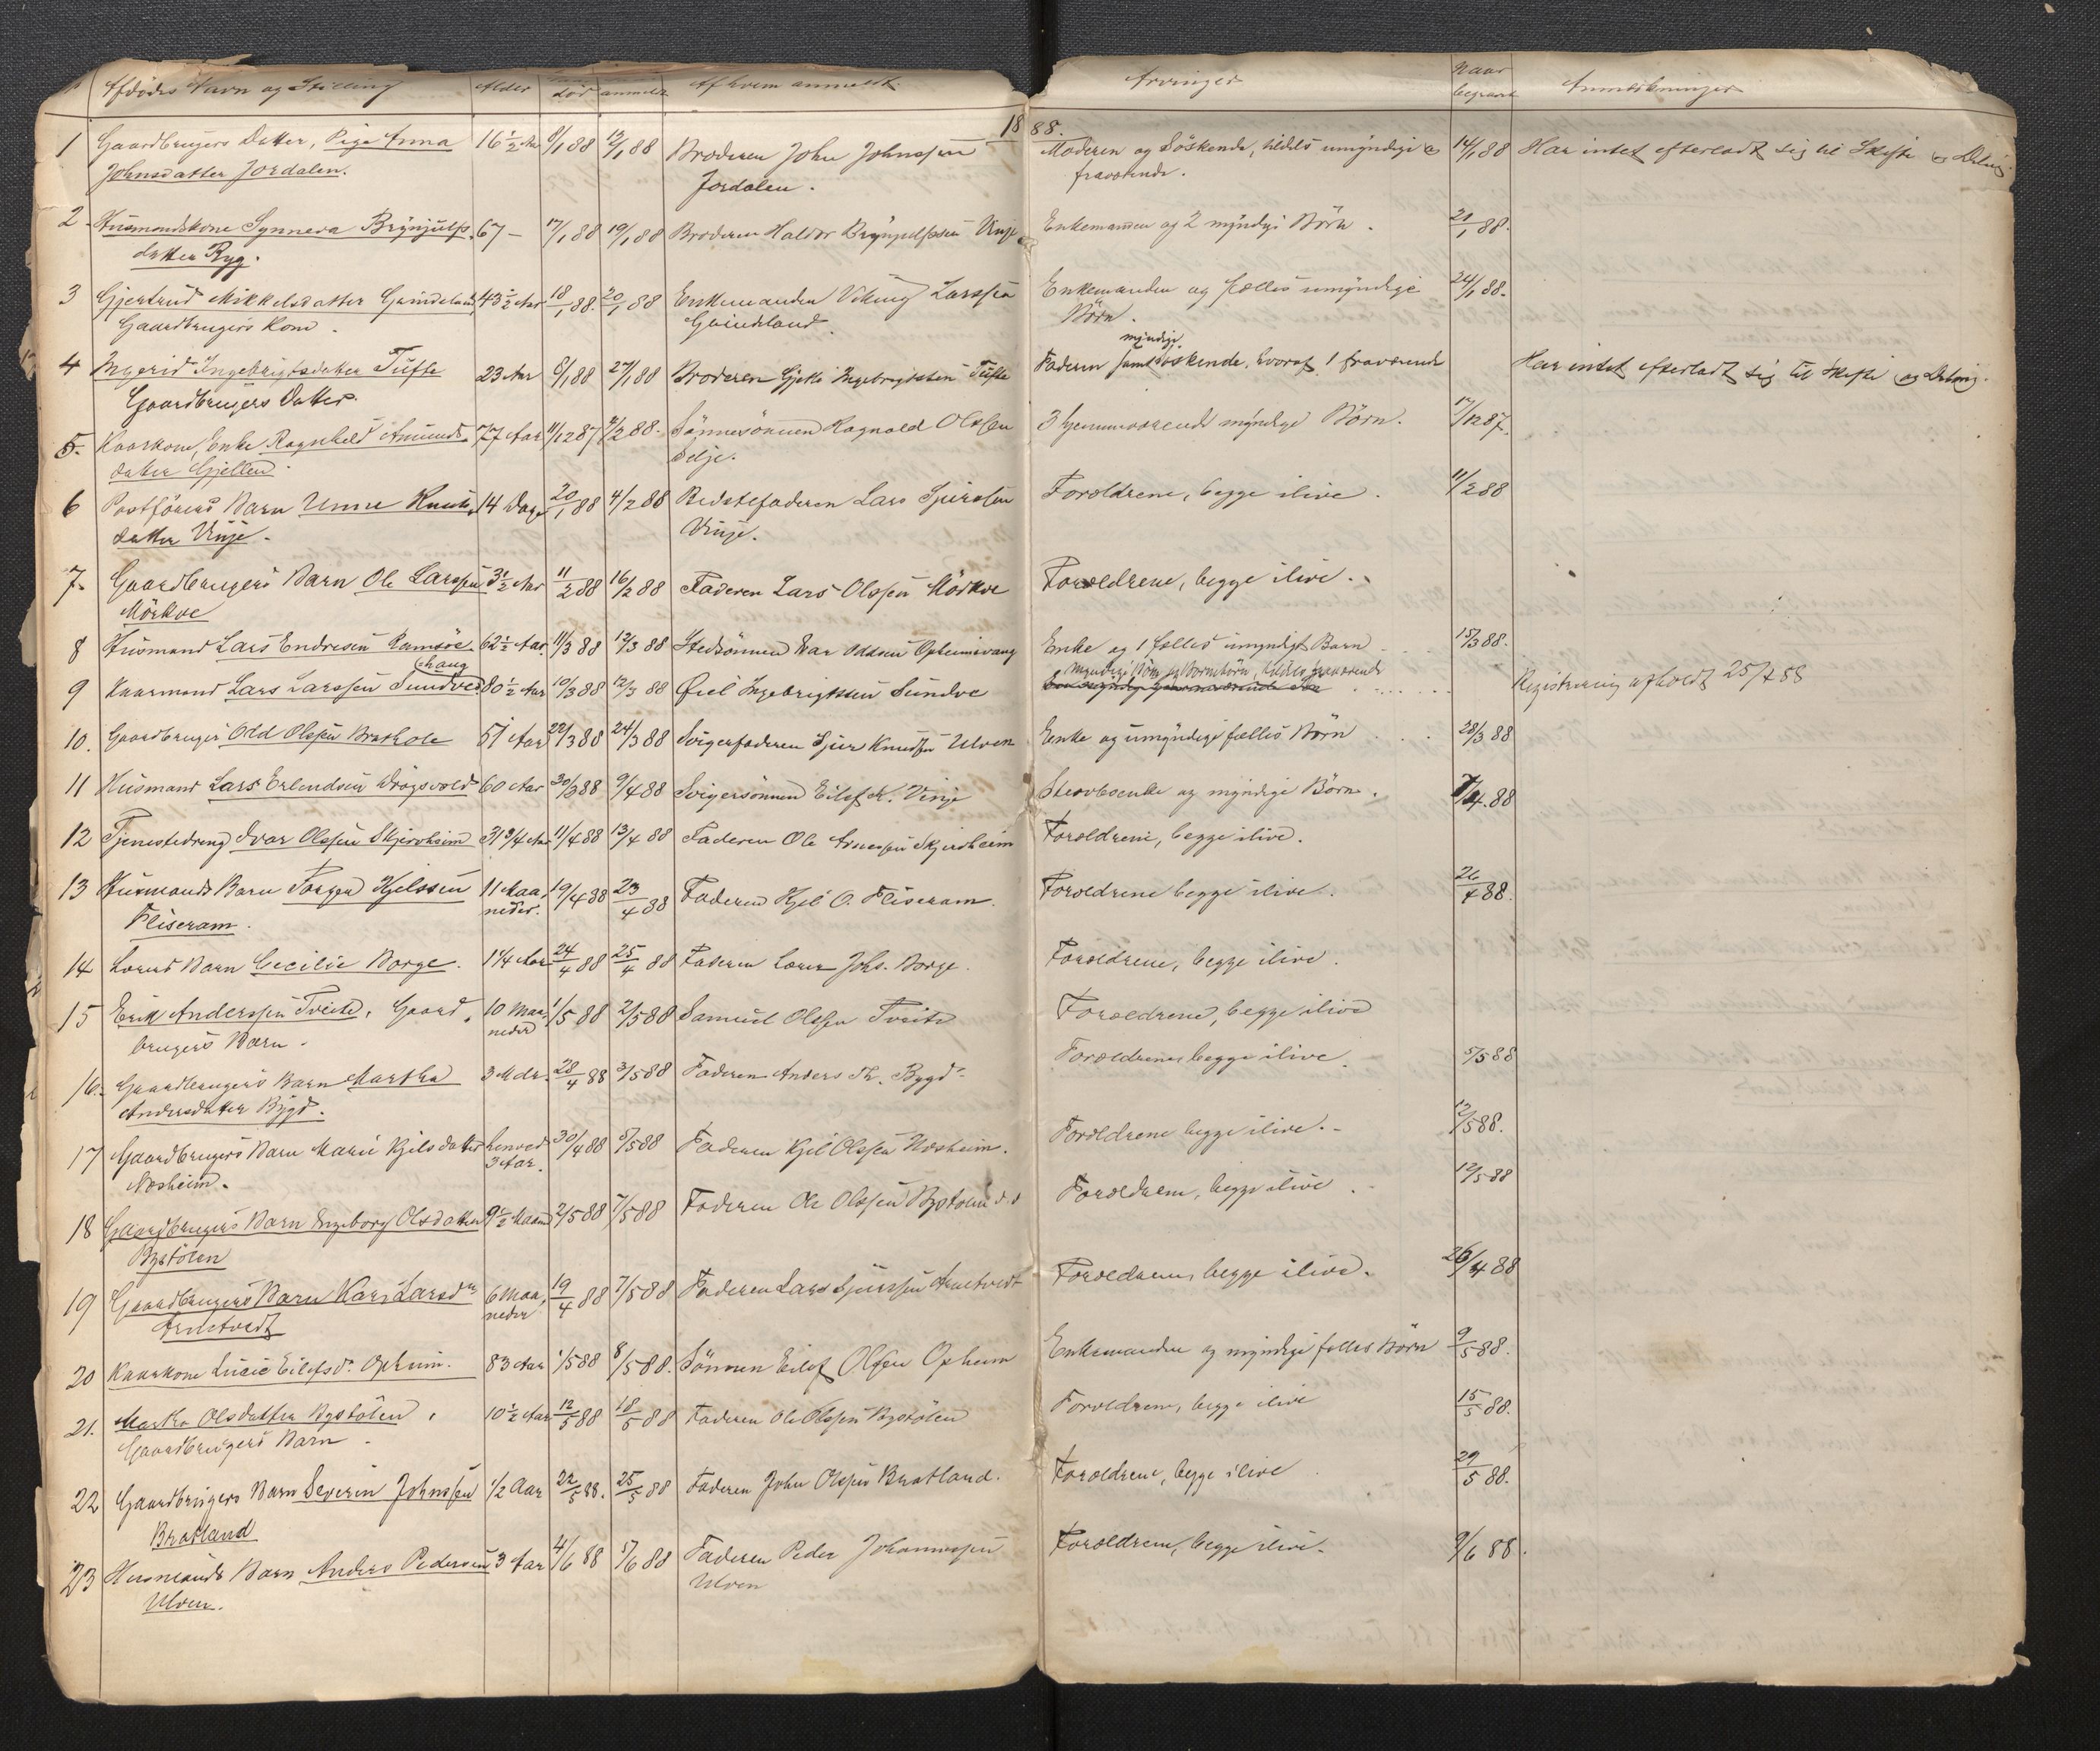 Afdødes Navn og Stilling Alder død anmeldt Af hvem anmeldt Arvinger Naar begravet Anmerkninger
1888.
1 Gaardbrugers Datter, Pige Anna 16 1/2 Aar 8/1 88 12/1 88 Broderen John Johnssen Moderen og Söskende, tildels umyndige og 14/1 88 Har intet efterladt sig til Skifte og Deling.
Johnsdatter Jordalen. Jordalen. fraværende.
2 Husmandskone Synneva Brynjulfs- 67 – 17/1 88 19/1 88 Broderen Haldor Brynjulfssen Vinje Enkemanden og 2 myndige Börn. 21/1 88.
datter Ryg.
3 Gjertrud Mikkelsdatter Grindeland, 43 1/2 Aar 18/1 88. 20/1 88 Enkemanden Viking Larssen Enkemanden og fælles umyndige 24/1 88.
Gaardbrugers Kone. Grindeland. Börn.
myndige
4 Ingerid Ingebrigtsdatter Tufte 23 Aar 8/1 88 27/1 88 Broderen Gjeki Ingebrigtsen Tufte Faderen samt söskende, hvoraf 1 fraværende Har intet efterladt sig til Skifte og Deling.
Gaardbrugers Datter.
5. Kaarkone, Enke Ragnhild Amunds- 77 Aar 11/12 87 4/2 88. Sönnesönnen Ragnald Olssen 3 hjemmeværende myndige Börn. 17/12 87.
datter Gjellen. Selje.
6 Postförers Barn Unne Knuts- 14 Dage 20/1 88 4/2 88 Bedstefaderen Lars Sjurssen Forældrene, begge ilive. 11/2 88
datter Vinje. Vinje.
7. Gaardbrugers Barn Ole Larssen 3 1/2 Aar 11/2 88 16/2 88 Faderen Lars Olssen Mörkve Forældrene, begge ilive.
Mörkve
8 Husmand Lars Endresen Ramsöe- 62 1/2 Aar. 11/3 88 12/3 88 Stedsönnen Ivar Oddsen Opheimsvang Enke og 1 fælles umyndigt Barn 15/3 88.
haug
myndige Börn og Börnebörn, tildels fraværende
9 Kaarmand Lars Larssen Sundve 80 1/2 Aar 10/3 88 12/3 88 Eiel Ingebrigtssen Sundve Registrering afholdt 25/4 88
10. Gaardbruger Odd Olssen Brækole 51 Aar 22/3 88 24/3 88 Svigerfaderen Sjur Knudsen Ulven Enke og umyndige fælles Börn 28/3 88
11 Husmand Lars Erlendsen Dragsvold 60 Aar 30/3 88 9/4 88 Svigersönnen Eilef K. Vinje Stervboenke og myndige Börn. 7/4 88
12 Tjenestedreng Ivar Olssen Skjervheim 31 3/4 Aar 11/4 88 13/4 88 Faderen Ole Arnessen Skjervheim Forældrene, begge ilive.
13 Husmands Barn Torgen Kjelssen 11 Maa- 19/4 88 23/4 88 Faderen Kjel O. Fliseram. Forældrene begge ilive. 26/4 88.
Fliseram. neder.
14 Lærers Barn Cecilie Borge. 1 1/4 Aar 24/4 88 25/4 88 Faderen Lærer Johs. Borge. Forældrene, begge ilive.
15 Erik Anderssen Tveite, Gaard- 10 Maa- 1/5 88 2/5 88 Samuel Olssen Tveite Forældrene, begge ilive
brugers Barn. neder
16. Gaardbrugers Barn Martha 3 Mdr. 28/4 88 3/5 88 Faderen Anders Th. Bygd. Forældrene, begge ilive. 5/5 88
Andersdatter Bygd.
17 Gaardbrugers Barn Marie Kjelsdatter henved 30/4 88 5/5 88 Faderen Kjel Olssen Næsheim. Forældrene begge ilive. 12/5 88.
Næsheim. 3 Aar.
18 Gaardbrugers Barn Ingeborg Olsdatter 9 1/2 Maaned 2/5 88 7/5 88 Faderen Ole Olssen Bystölen Forældrene, begge ilive. 12/5 88
Bystölen
19 Gaardbrugers Barn Kari Larsdtr 6 Maa- 19/4 88 7/5 88 Faderen Lars Sjurssen Arnetvedt Forældrene, begge ilive. 26/4 88
Arnetvedt neder
20 Kaarkone Lucie Eilefsd. Opheim. 83 Aar 1/5 88 8/5 88. Sönnen Eilef Olssen Opheim Enkemanden og myndige fælles Börn 9/5 88.
21. Martha Olsdatter Bystölen, 10 1/2 Aar 12/5 88 18/5 88 Faderen Ole Olssen Bystölen Forældrene, begge ilive 15/5 88.
Gaardbrugers Barn.
22 Gaardbrugers Barn Severin Johnssen 1/2 Aar 22/5 88. 25/5 88 Faderen John Olssen Bratland. Forældrene, begge ilive 29/5 88.
Bratland
23 Husmands Barn Anders Pedersen 3 Aar 4/6 88 5/6 88 Faderen Peder Johannessen Forældrene, begge ilive. 9/6 88.
Ulven. Ulven